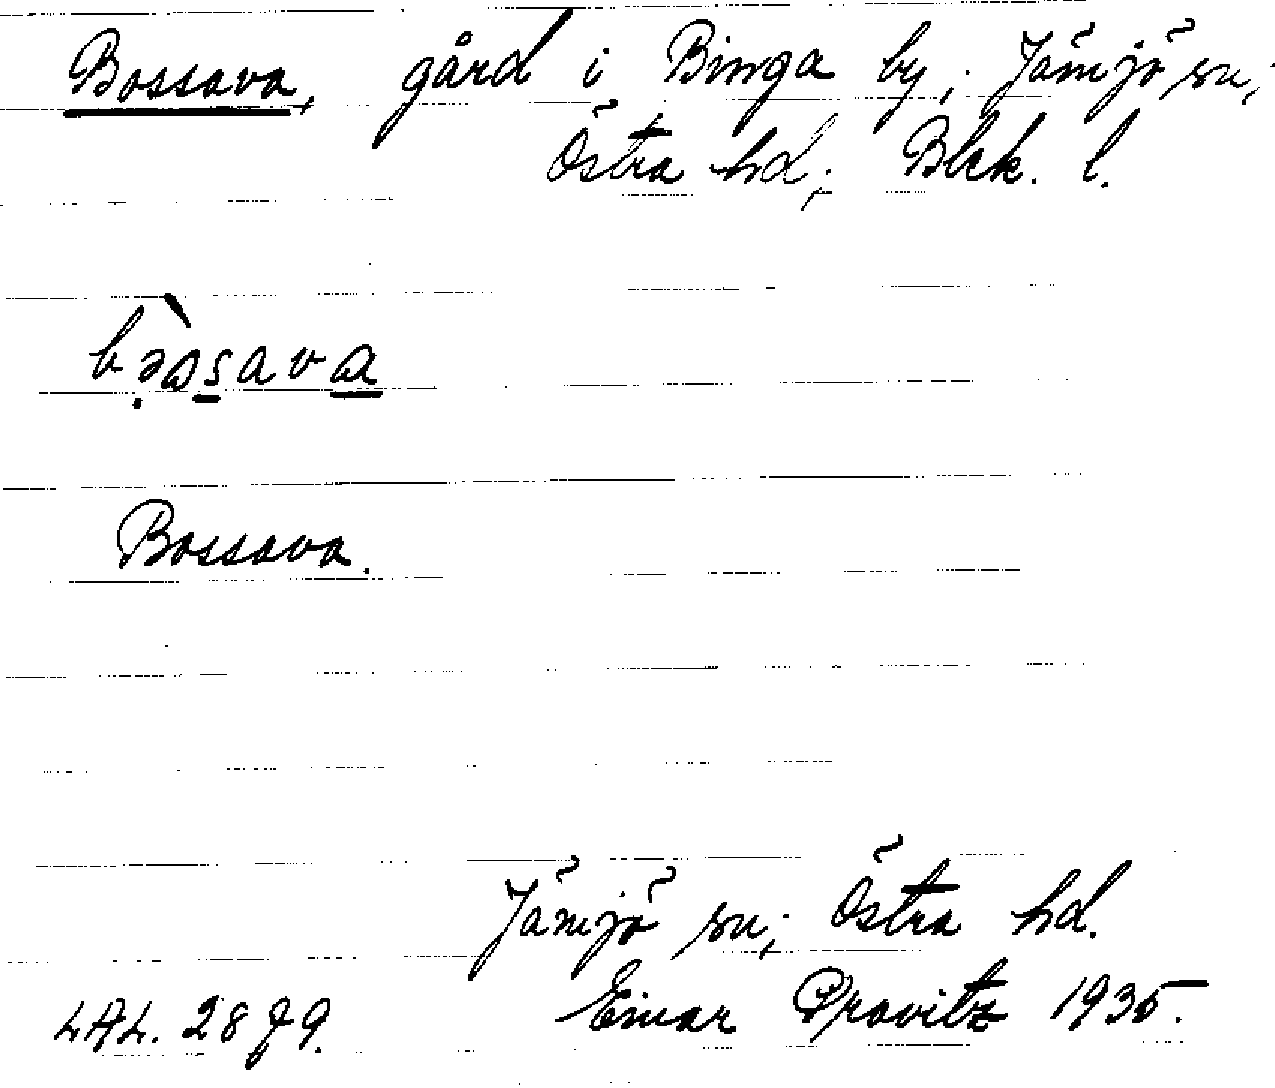 Bossava, gård i Binga by, Jämjö sn,
Östra hd, Blek. l.
Bossava.
Jämjö sn, Östra hd.
LAL. 2879. Einar Pravitz 1935.